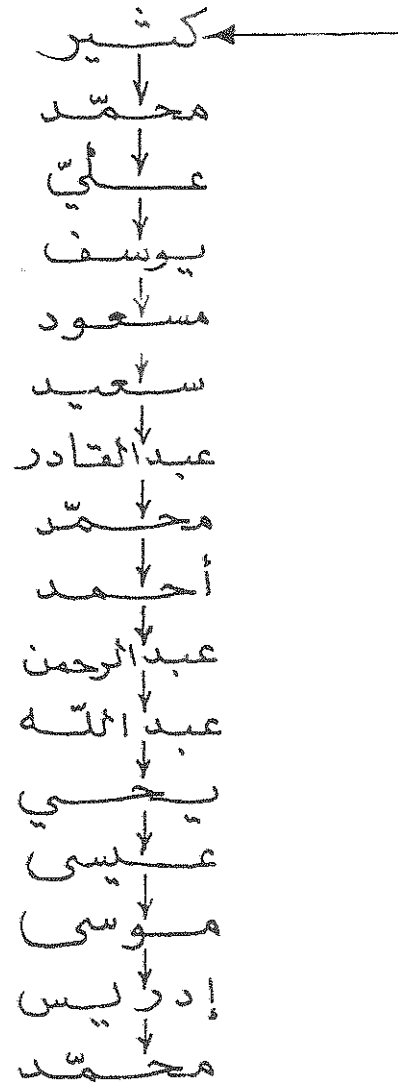 كثير
محمّد
عليّ
يوسف
مسعود
سعيد
عبدالقادر
محمّد
أحمد
عبدالرحمن
عبد اللّه
يحي
عيسى
موسى
إدريس
محمّد